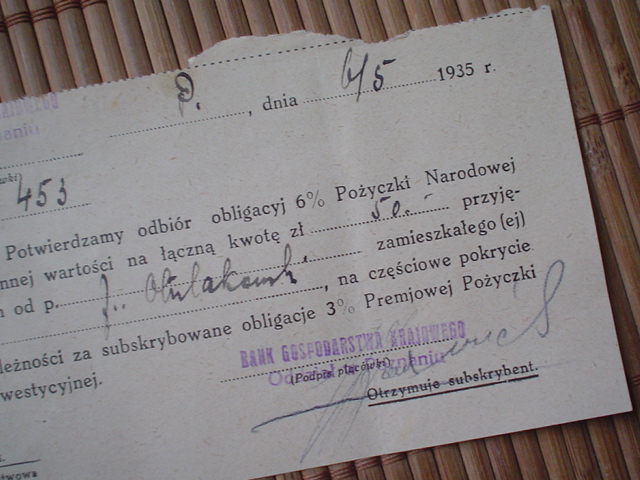 P. , dnia 6/5 1935 r.
453
Potwierdzamy odbiór obligacyj 6% Pożyczki Narodowej
nnej wartości na łączną kwotę zł 50.- przyję-
od p. J. zamieszkałego (ej)
, na częściowe pokrycie
leżności za subskrybowane obligacje 3% Premjowej Pożyczki
westycyjnej.
BANK GOSPODARSTWA KRAJOWEGO
Poznaniu
(Podpis placówki)
Otrzymuje subskrybent.